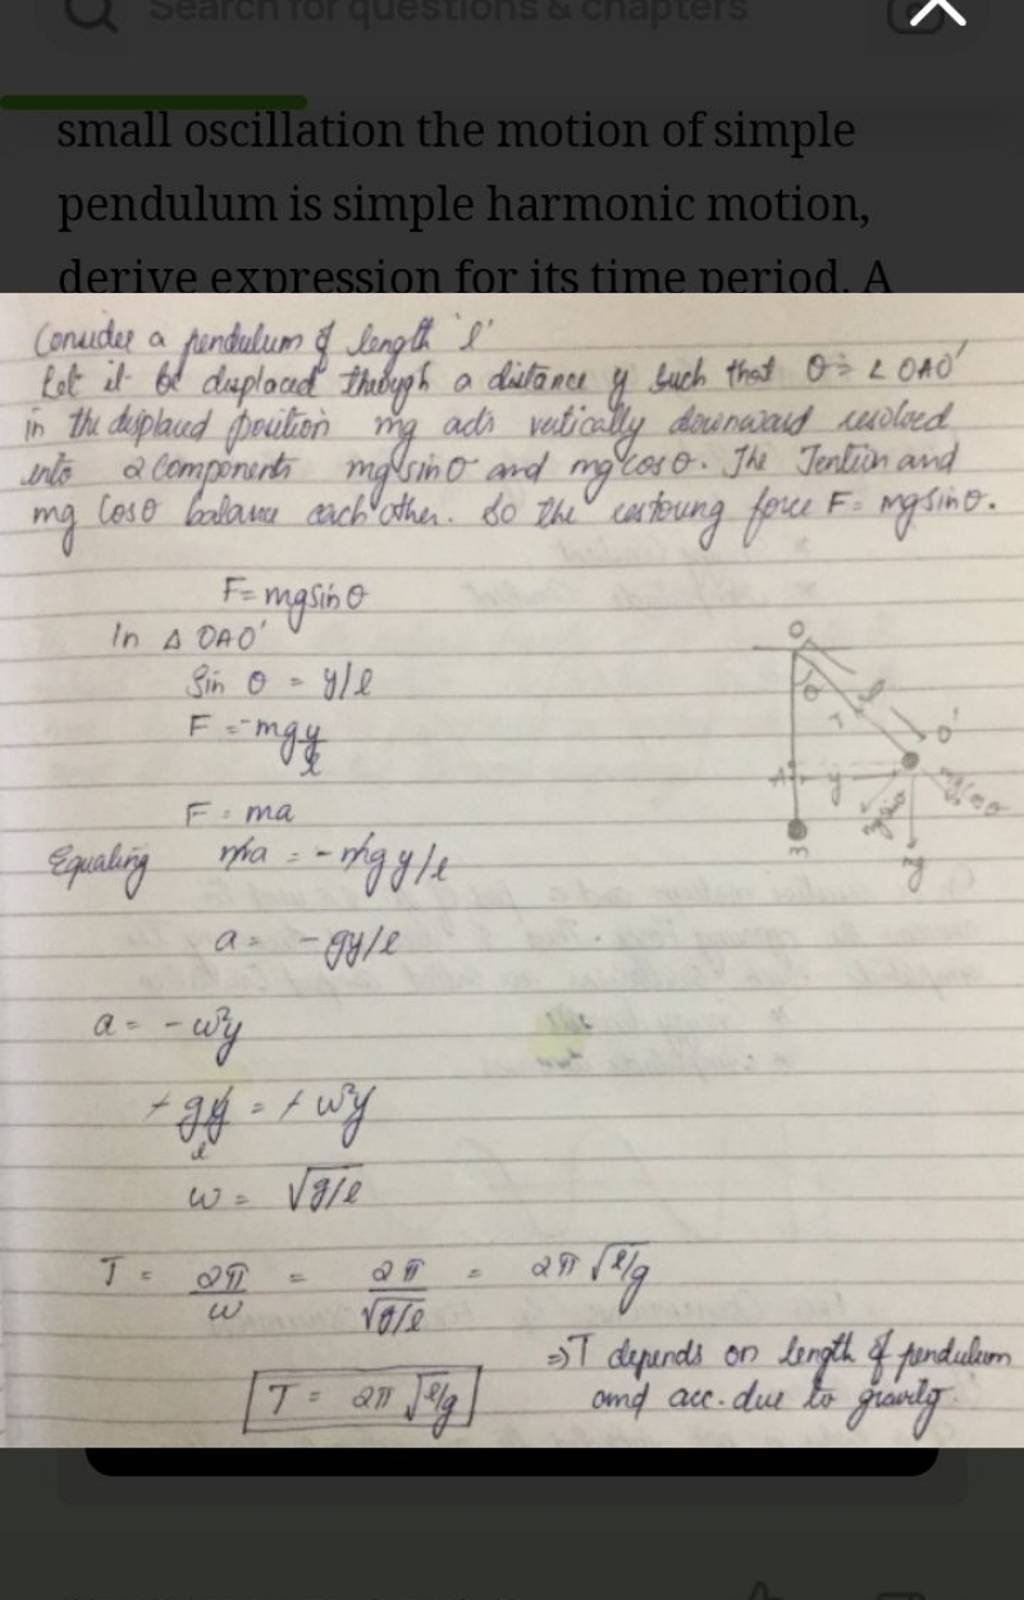 Search for questions & chapters
small oscillation the motion of simple
pendulum is simple harmonic motion,
derive expression for its time period. A
Consider a pendulum of length 'l'
Let it be displaced through a distance y such that θ = ∠OAO'
in the displaced position mg acts vertically downward resolved
into 2 components mg sinθ and mg cosθ. The Tension and
mg Cosθ balance each other. So the restoring force F = mgsinθ.
F = mgsinθ
In Δ OAO'
Sin θ = y/l
F = -mg y/l
F = ma
Equaling ma = -mg y/l
a = -gy/l
a = -ω²y
+ gy/l = + ω²y
ω = √g/l
T = 2π/ω = 2π/√g/l = 2π √l/g
⇒ T depends on length of pendulum
T = 2π √l/g
and acc. due to gravity.
O
θ
l
T
O'
A
y
mg sinθ
mg cosθ
mg